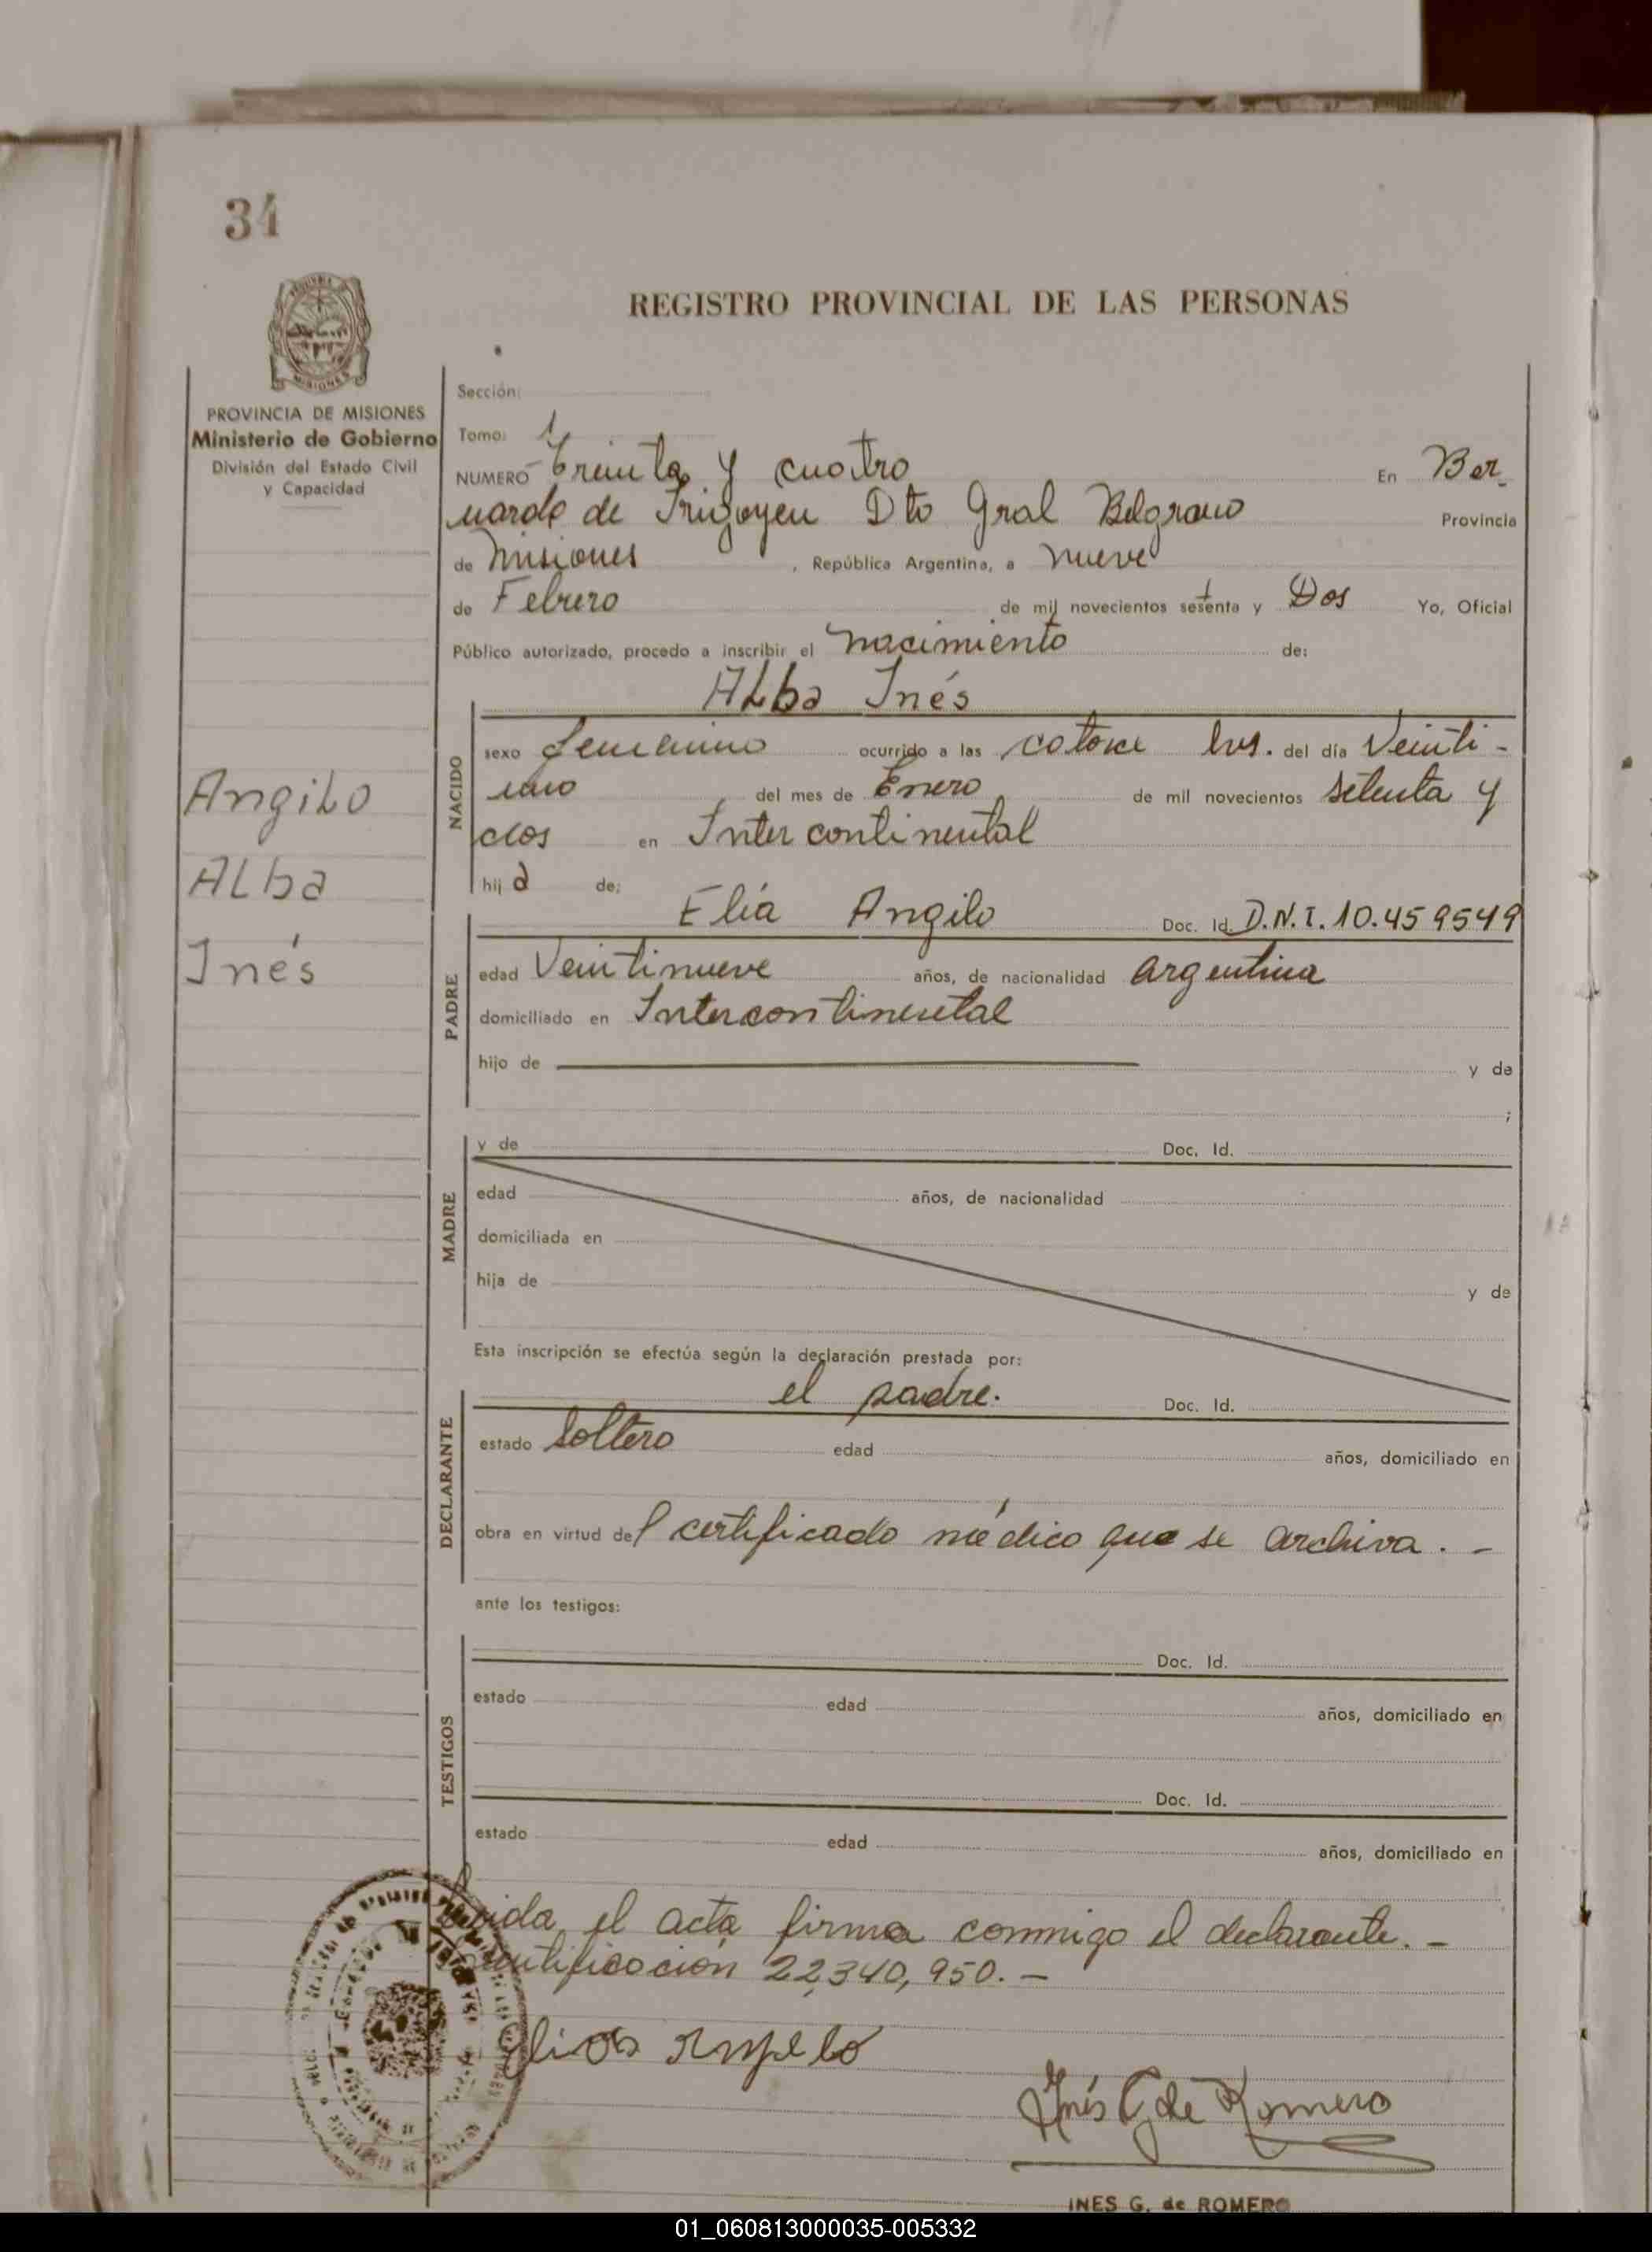 34
REGISTRO PROVINCIAL DE LAS PERSONAS
MISIONES
PROVINCIA DE MISIONES
Ministerio de Gobierno
División del Estado Civil
y Capacidad
Angilo
Alba
Inés
Sección:
Tomo: 1
NUMERO Treinta y cuatro En Ber-
nardo de Irigoyen Dto Gral Belgrano Provincia
de Misiones, República Argentina, a nueve
de Febrero de mil novecientos setenta y Dos Yo, Oficial
Público autorizado, procedo a inscribir el nacimiento de:
Alba Inés
NACIDO
sexo femenino ocurrido a las catorce hrs. del día Veinti-
uno del mes de Enero de mil novecientos setenta y
dos en Intercontinental
hija de:
PADRE
Elía Angilo Doc. Id. D.N.I. 10.459549
edad Veintinueve años, de nacionalidad argentina
domiciliado en Intercontinental
hijo de y de
;
MADRE
y de Doc. Id.
edad años, de nacionalidad
domiciliada en
hija de y de
Esta inscripción se efectúa según la declaración prestada por:
DECLARANTE
el padre. Doc. Id.
estado soltero edad años, domiciliado en
obra en virtud del certificado médico que se archiva. -
ante los testigos:
TESTIGOS
Doc. Id.
estado edad años, domiciliado en
Doc. Id.
estado edad años, domiciliado en
el acta firma conmigo el declarante. -
22,340,950. -
Inés G de Romero
INES G. de ROMERO
01_060813000035-005332